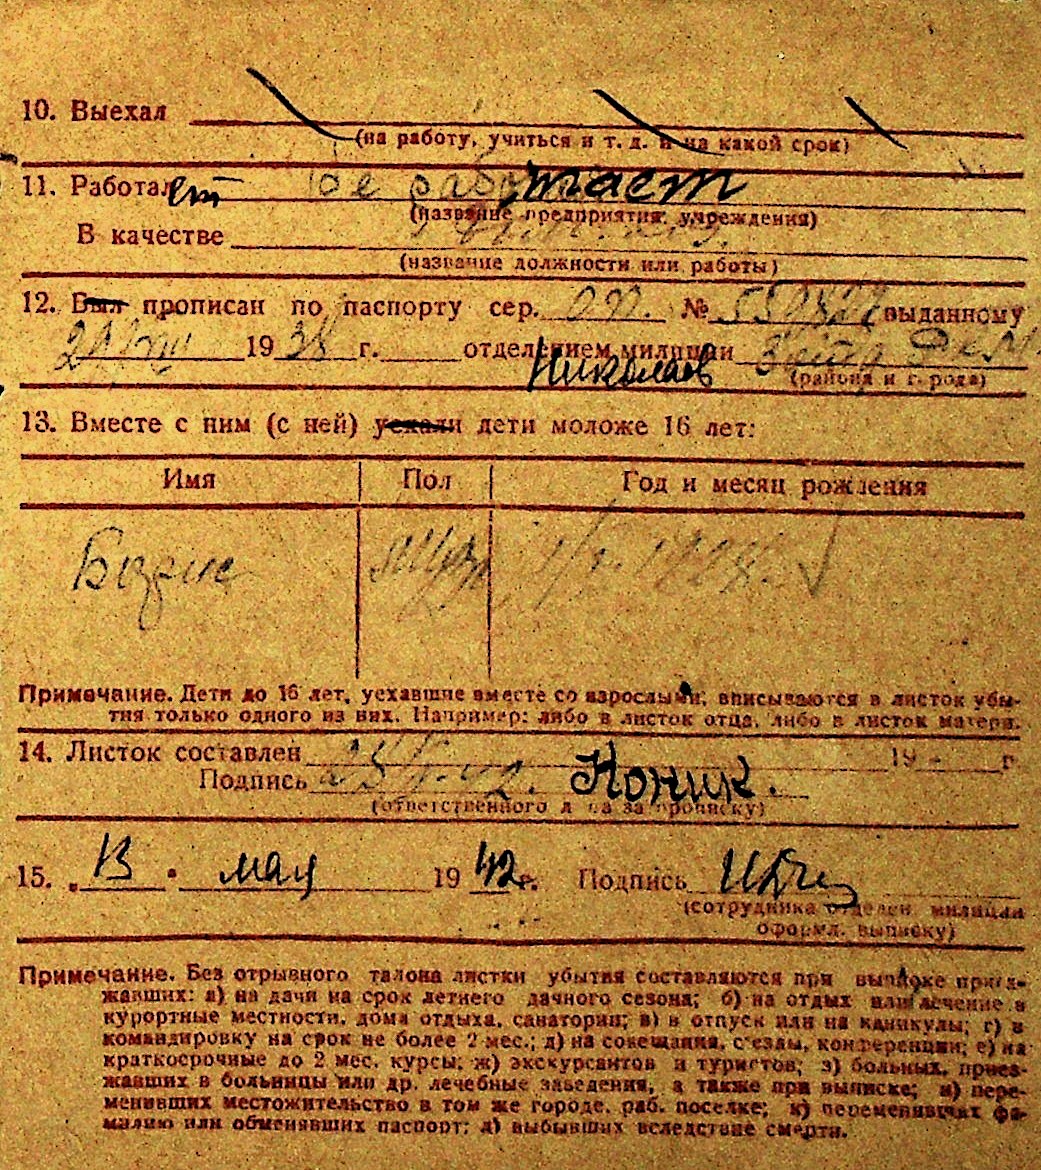 10. Выехал
(на работу, учиться и т. д. и на какой срок)
11. Работает не работает
(название предприятия, учреждения)
В качестве
(название должности или работы)
12. Был прописан по паспорту сер. № выданному
1938 г. отделением милиции
Николаев
(района и города)
13. Вместе с ним (с ней) уехали дети моложе 16 лет:
Имя Пол Год и месяц рождения
Борис муж
Примечание. Дети до 16 лет, уехавшие вместе со взрослыми, вписываются в листок убы-
тия только одного из них. Например: либо в листок отца, либо в листок матери.
14. Листок составлен 19 г.
Подпись Коник.
(ответственного лица за прописку)
15. „13" мая 1942 г. Подпись
(сотрудника отделен. милиции
оформл. выписку)
Примечание. Без отрывного талона листки убытия составляются при выписке приез-
жавших: а) на дачи на срок летнего дачного сезона; б) на отдых или лечение в
курортные местности, дома отдыха, санатории; в) в отпуск или на каникулы; г) в
командировку на срок не более 2 мес.; д) на совещания, с'езды, конференции; е) на
краткосрочные до 2 мес. курсы; ж) экскурсантов и туристов; з) больных, приез-
жавших в больницы или др. лечебные заведения, а также при выписке; и) пере-
менивших местожительство в том же городе, раб. поселке; к) переменивших фа-
милию или обменявших паспорт; л) выбывших вследствие смерти.